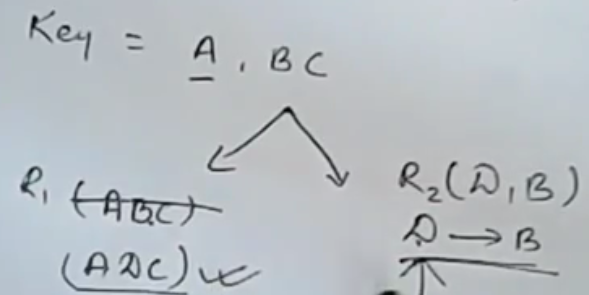 Key = A, BC
R₁ (ABC)
(ADC)
R₂(D,B)
D → B